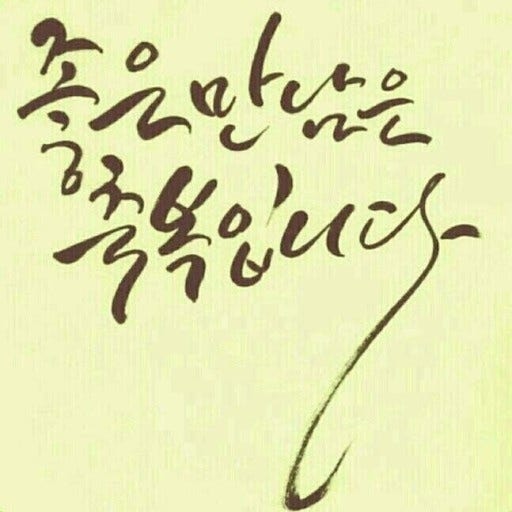 좋은만남은
축복입니다